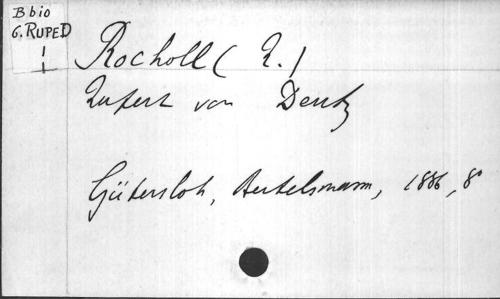 B bio
6.RUPED
1
Rocholl ( R. )
Rupert von Deutz
Gütersloh, Bertelsmann, 1886, 8°